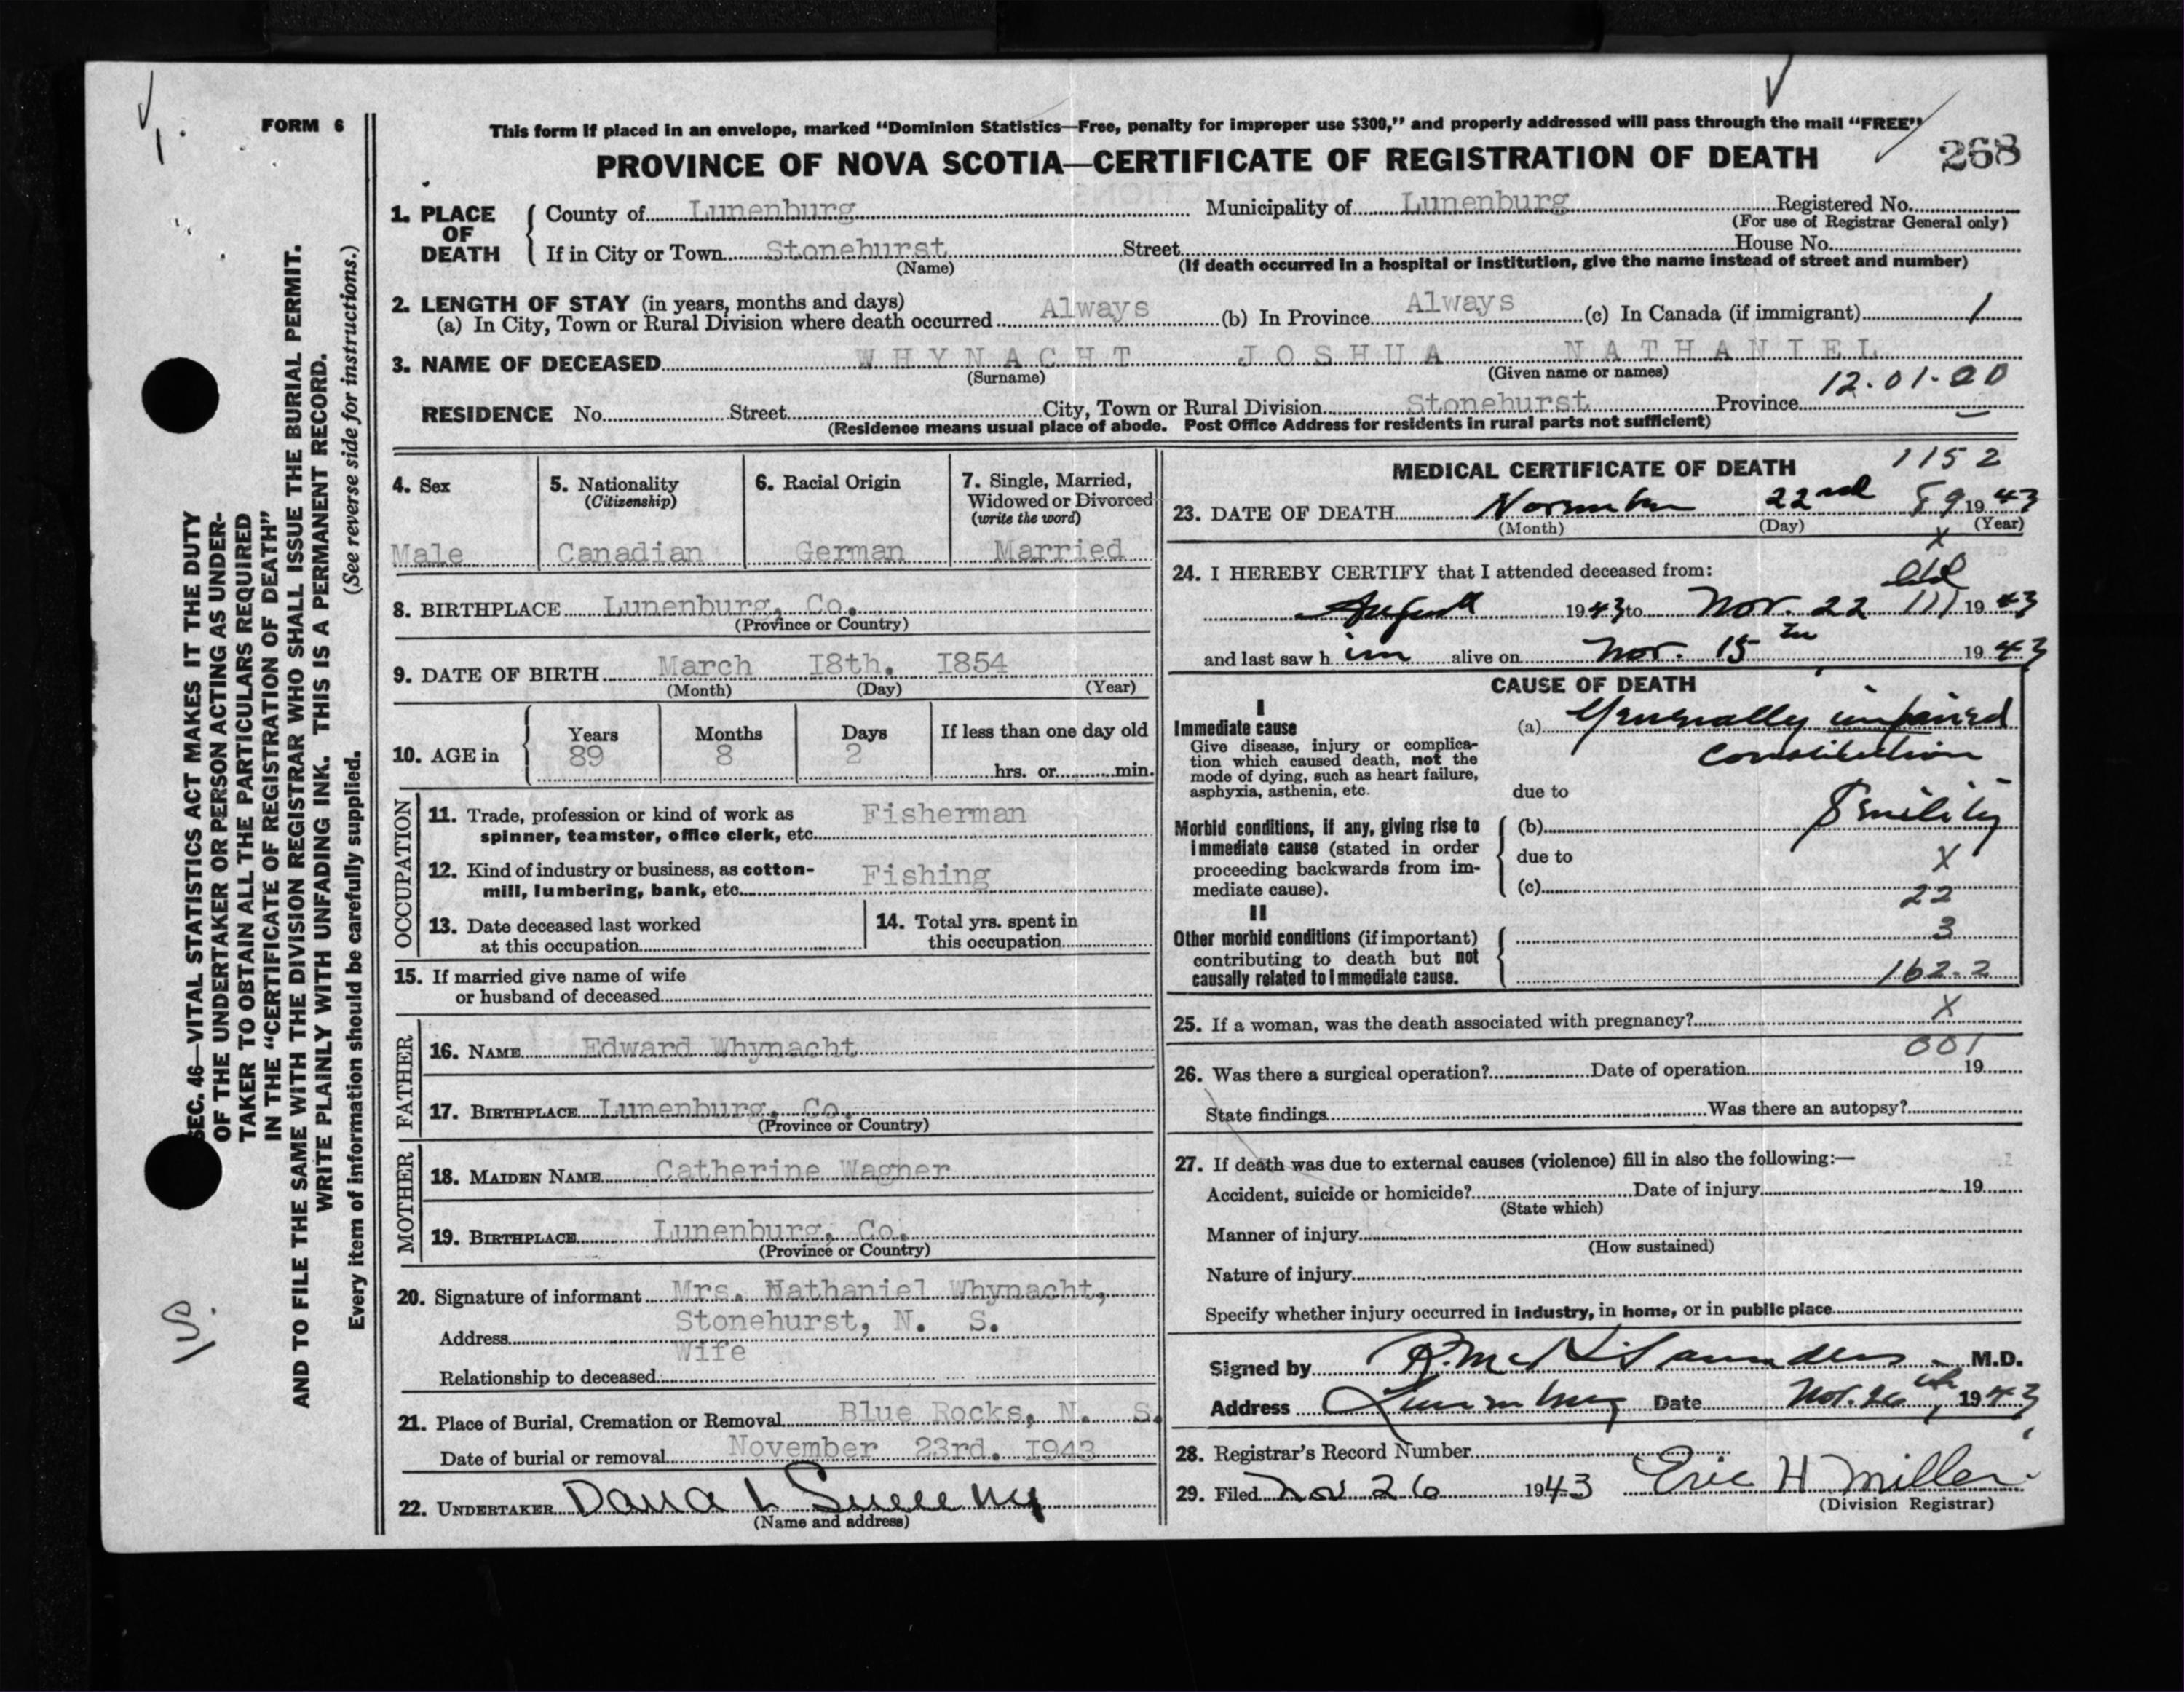 FORM 6
This form if placed in an envelope, marked “Dominion Statistics—Free, penalty for improper use $300,” and properly addressed will pass through the mail “FREE”
PROVINCE OF NOVA SCOTIA—CERTIFICATE OF REGISTRATION OF DEATH
268
1. PLACE OF DEATH
County of Lunenburg Municipality of Lunenburg Registered No.
(For use of Registrar General only)
If in City or Town Stonehurst Street House No.
(Name) (If death occurred in a hospital or institution, give the name instead of street and number)
2. LENGTH OF STAY (in years, months and days)
(a) In City, Town or Rural Division where death occurred Always (b) In Province Always (c) In Canada (if immigrant) 1
3. NAME OF DECEASED WHYNACHT JOSHUA NATHANIEL
(Surname) (Given name or names)
12.01-20
RESIDENCE No. Street City, Town or Rural Division Stonehurst Province
(Residence means usual place of abode. Post Office Address for residents in rural parts not sufficient)
4. Sex
Male
5. Nationality
(Citizenship)
Canadian
6. Racial Origin
German
7. Single, Married,
Widowed or Divorced
(write the word)
Married
8. BIRTHPLACE Lunenburg, Co.
(Province or Country)
9. DATE OF BIRTH March 18th. 1854
(Month) (Day) (Year)
10. AGE in
Years Months Days If less than one day old
89 8 2
hrs. or min.
OCCUPATION
11. Trade, profession or kind of work as
spinner, teamster, office clerk, etc. Fisherman
12. Kind of industry or business, as cotton-
mill, lumbering, bank, etc. Fishing
13. Date deceased last worked
at this occupation
14. Total yrs. spent in
this occupation
15. If married give name of wife
or husband of deceased
FATHER
16. NAME Edward Whynacht
17. BIRTHPLACE Lunenburg, Co.
(Province or Country)
MOTHER
18. MAIDEN NAME Catherine Wagner
19. BIRTHPLACE Lunenburg, Co.
(Province or Country)
20. Signature of informant Mrs. Nathaniel Whynacht,
Address Stonehurst, N. S.
Relationship to deceased Wife
21. Place of Burial, Cremation or Removal Blue Rocks, N. S.
Date of burial or removal November 23rd. 1943
22. UNDERTAKER Dana L Sweeny
(Name and address)
MEDICAL CERTIFICATE OF DEATH
1152
23. DATE OF DEATH November 22nd 89 1943
(Month) (Day) (Year)
x
24. I HEREBY CERTIFY that I attended deceased from:
August 1943 to Nov. 22 111 1943
and last saw h im alive on Nov. 15th 1943
CAUSE OF DEATH
I
Immediate cause
Give disease, injury or complica-
tion which caused death, not the
mode of dying, such as heart failure,
asphyxia, asthenia, etc.
(a) Generally impaired
constitution
due to
Morbid conditions, if any, giving rise to
immediate cause (stated in order
proceeding backwards from im-
mediate cause).
(b) Senility
due to
X
(c)
22
II
Other morbid conditions (if important)
contributing to death but not
causally related to immediate cause.
3
162.2
25. If a woman, was the death associated with pregnancy? X
001
26. Was there a surgical operation? Date of operation 19
State findings Was there an autopsy?
27. If death was due to external causes (violence) fill in also the following:—
Accident, suicide or homicide? Date of injury 19
(State which)
Manner of injury
(How sustained)
Nature of injury
Specify whether injury occurred in industry, in home, or in public place
Signed by R. McK Saunders M.D.
Address Lunenburg Date Nov. 26th, 1943
28. Registrar's Record Number
29. Filed Nov 26 1943 Eric H Miller
(Division Registrar)
SEC. 46—VITAL STATISTICS ACT MAKES IT THE DUTY
OF THE UNDERTAKER OR PERSON ACTING AS UNDER-
TAKER TO OBTAIN ALL THE PARTICULARS REQUIRED
IN THE “CERTIFICATE OF REGISTRATION OF DEATH”
AND TO FILE THE SAME WITH THE DIVISION REGISTRAR WHO SHALL ISSUE THE BURIAL PERMIT.
WRITE PLAINLY WITH UNFADING INK. THIS IS A PERMANENT RECORD.
Every item of information should be carefully supplied. (See reverse side for instructions.)